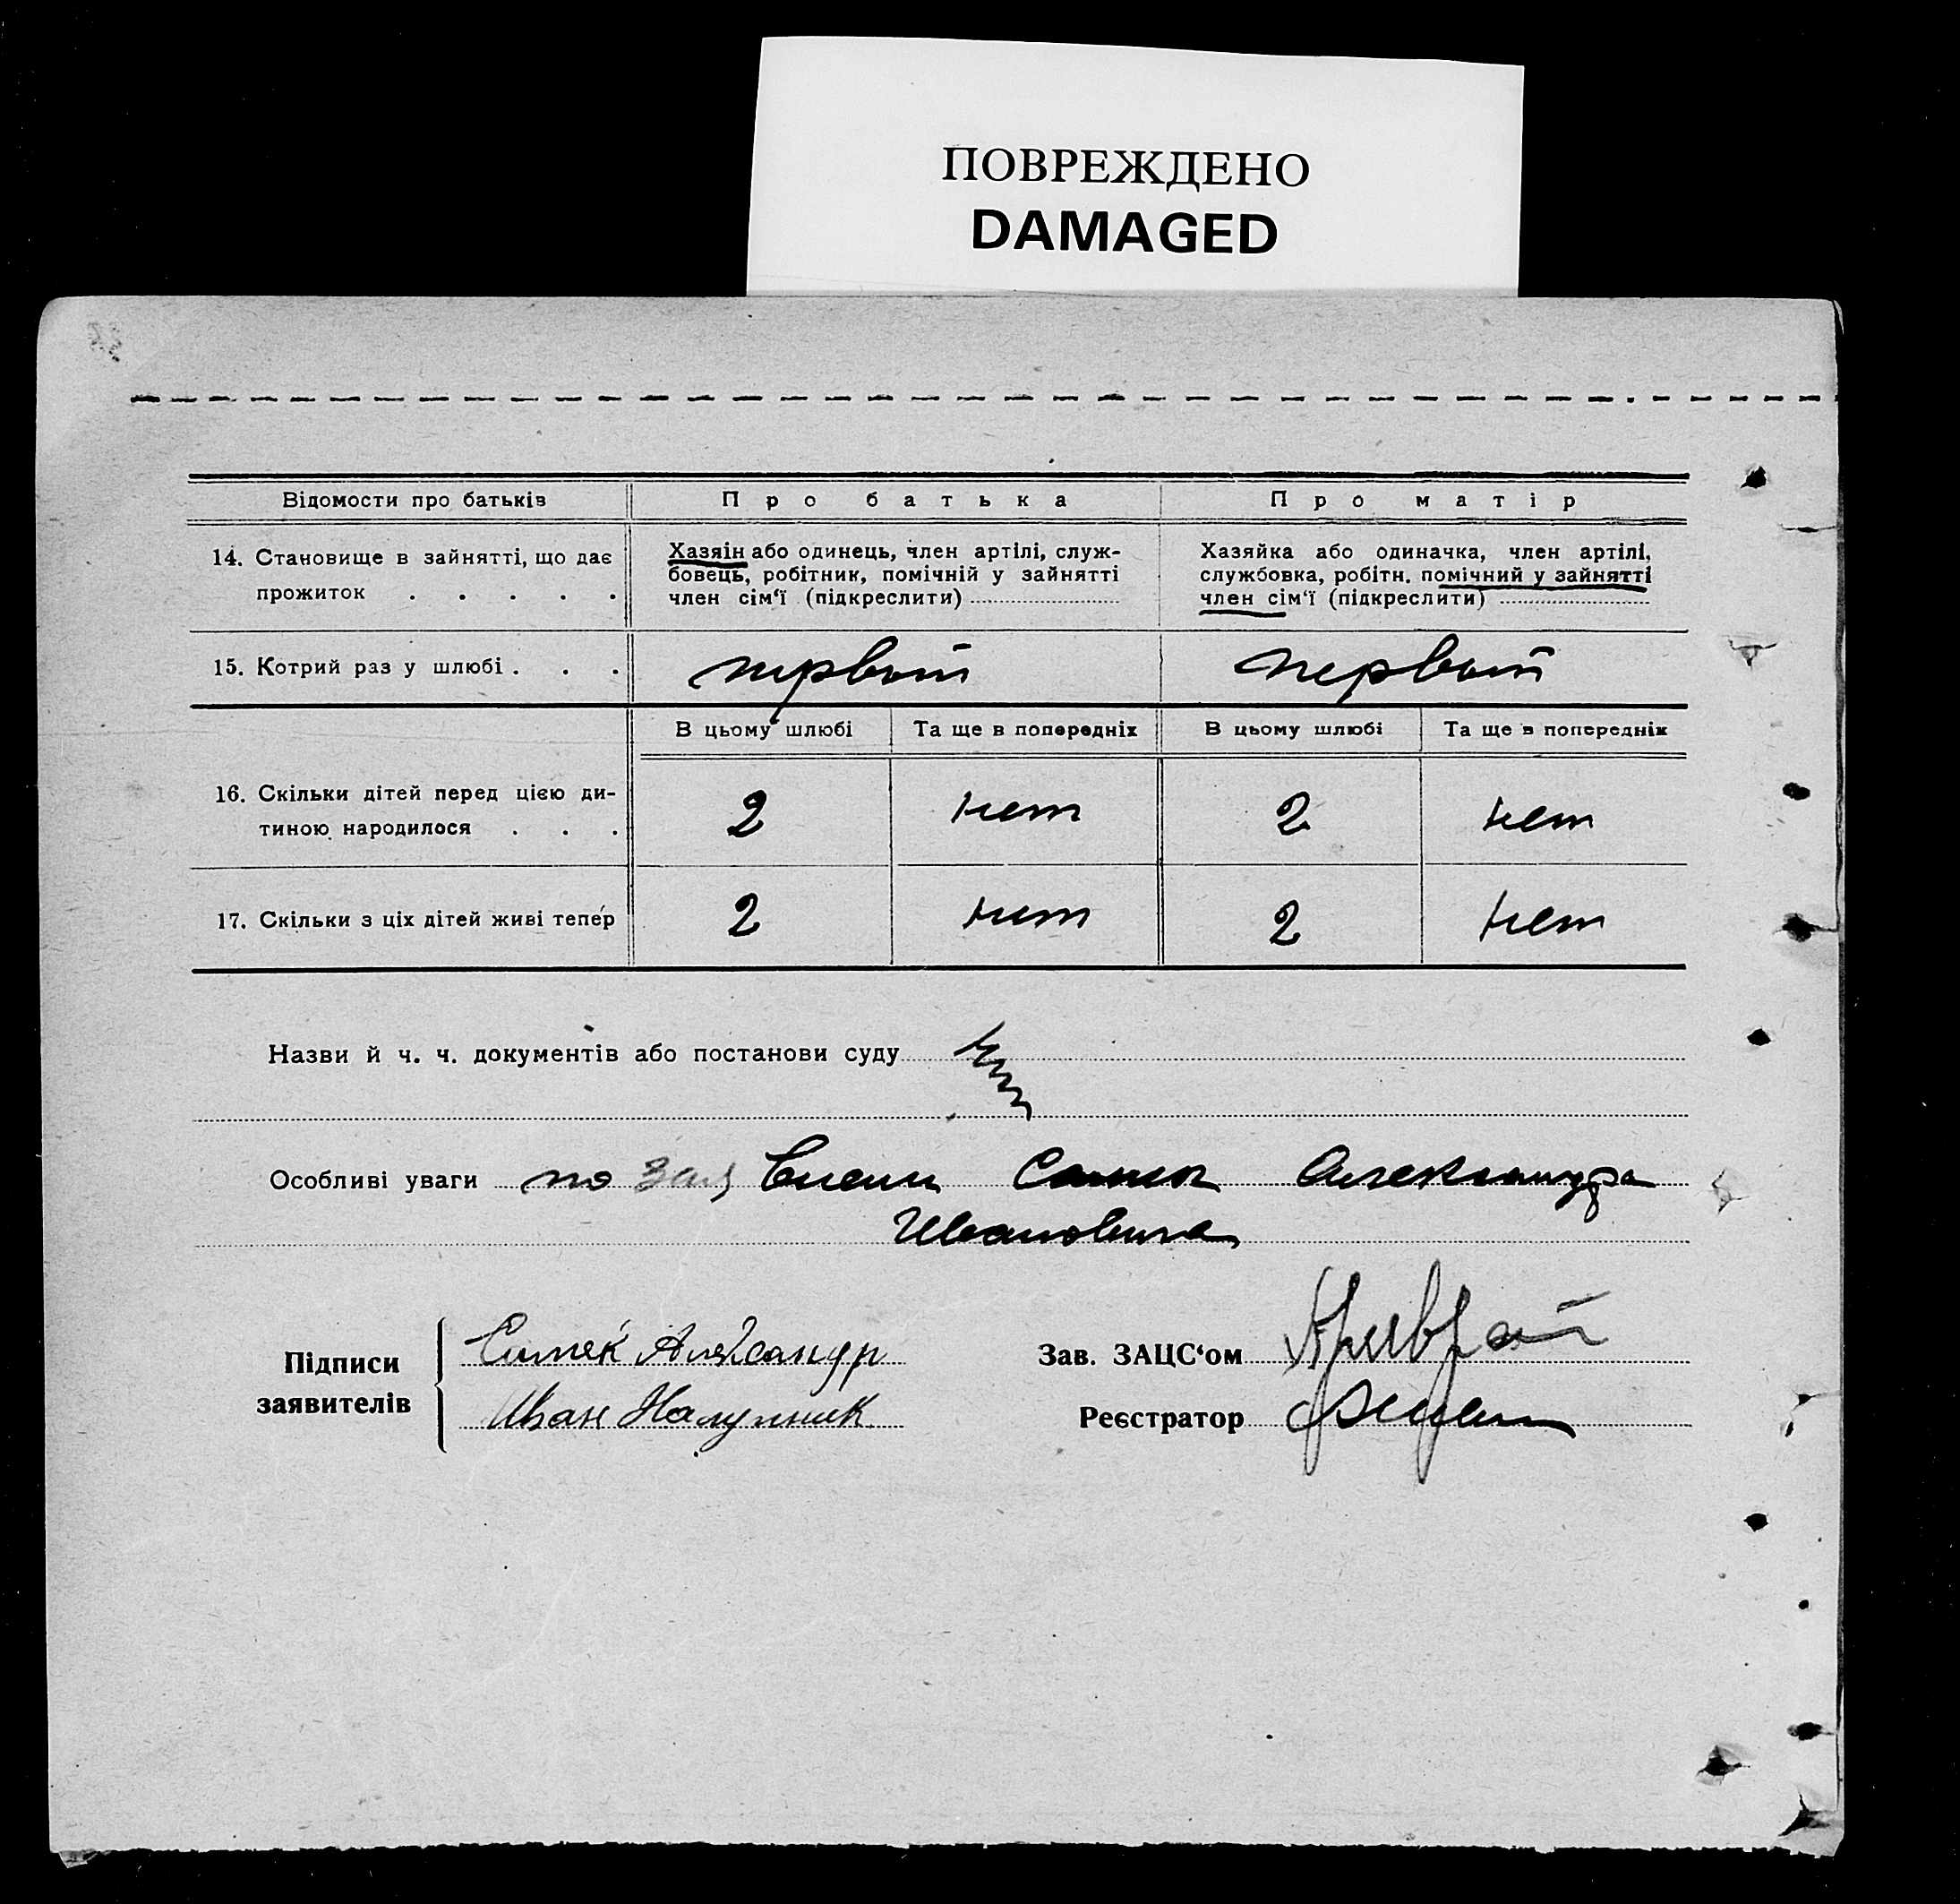 ПОВРЕЖДЕНО
DAMAGED
Відомости про батьків
Про батька
Про матір
14. Становище в зайнятті, що дає
прожиток . . . . .
Хазяін або одинець, член артілі, служ-
бовець, робітник, помічній у зайнятті
член сім‘ї (підкреслити)
Хазяйка або одиначка, член артілі,
службовка, робітн. помічний у зайнятті
член сім‘ї (підкреслити)
15. Котрий раз у шлюбі . . .
первый
первый
В цьому шлюбі
Та ще в попередніх
В цьому шлюбі
Та ще в попередніх
16. Скільки дітей перед цією ди-
тиною народилося . . .
2
нет
2
нет
17. Скільки з ціх дітей живі тепер
2
нет
2
нет
Назви й ч. ч. документів або постанови суду
Особливі уваги по Александра
Ивановича
Підписи
заявителів
Симек Александр
Иван
Зав. ЗАЦС‘ом
Реєстратор